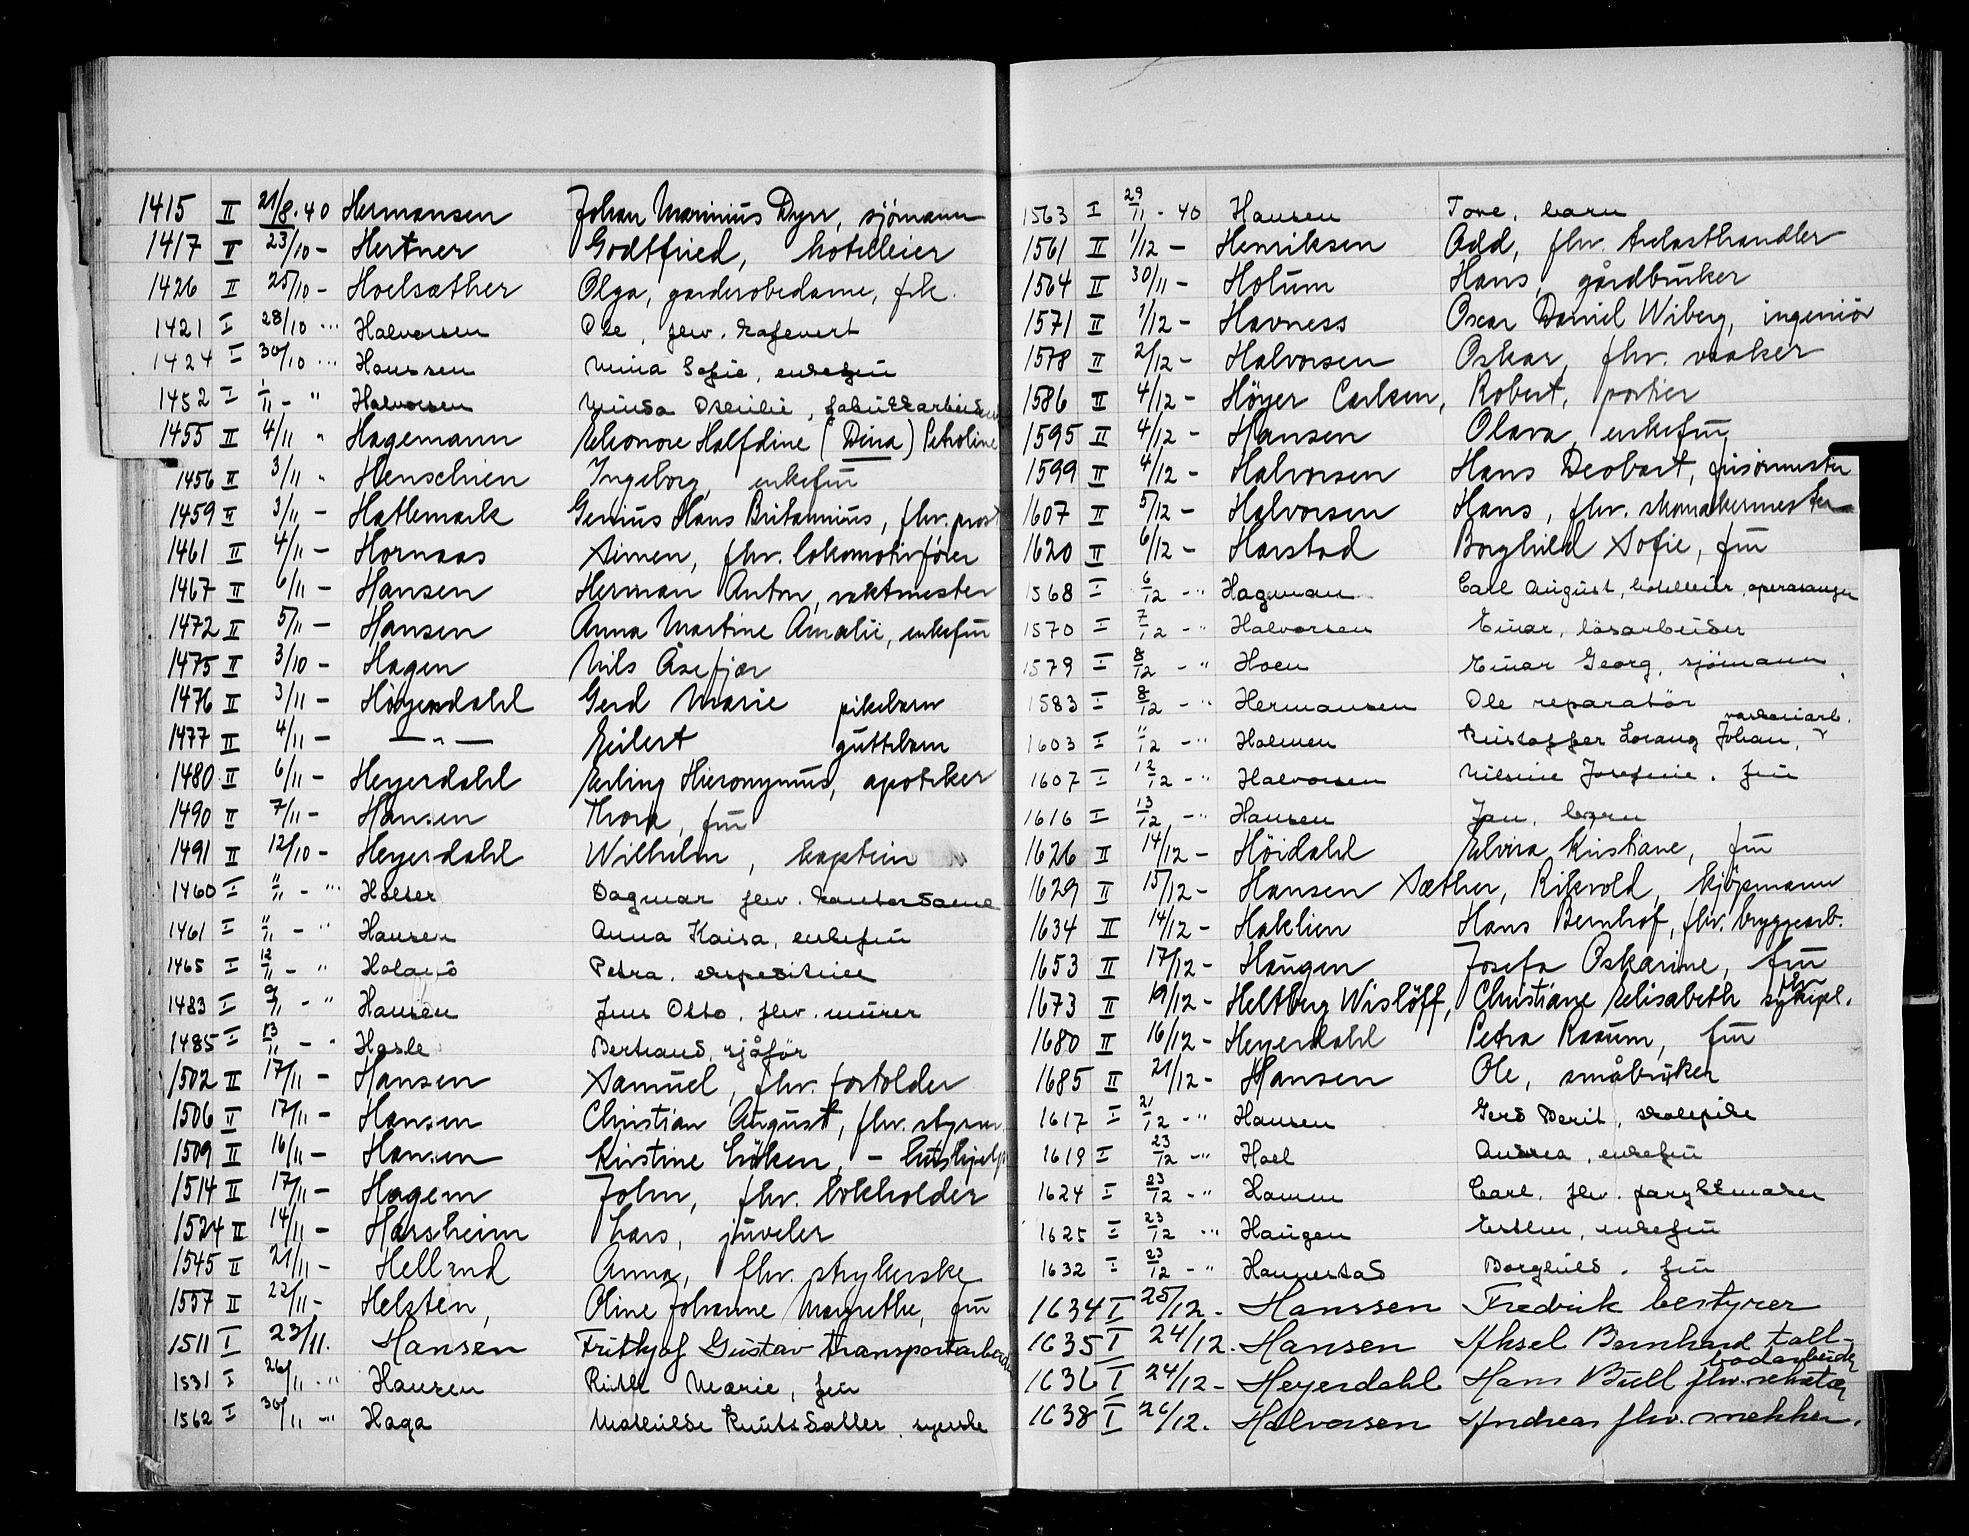 1415 II 21/8. 40 Hermansen Johan Marinius Dyrr, sjömann
1417 II 23/10 - Hertner Godtfried, hotelleier
1426 II 25/10 - Hoelsæther Olga, garderobedame, frk.
1421 I 28/10 ... Halvorsen Ole, fhv. kafevert
1424 I 30/10 ... Hanssen Mina Sofie, enkefru
1452 I 1/11 - " Halvorsen Otilie, fabrikkarbeider
1455 II 4/11 " Hagemann Eleonore Halfdine (Dina) Petroline
1456 II 3/11 " Henschien Ingeborg, enkefru
1459 II 3/11 - Hatlemark Genius Hans Britannius, fhv. prost
1461 II 4/11 - Hornaas Simen, fhv. lokomotivförer
1467 II 6/11 - Hansen Herman Anton, vaktmester
1472 II 5/11 - Hansen Anna Martine Amalie, enkefru
1475 II 3/10 - Hagen Nils Åsefjær
1476 II 3/11 - Höyendahl Gerd Marie pikebarn
1477 II 4/11 - — " — Eilert guttebarn
1480 II 6/11 - Heyerdahl Erling Hieronymus, apoteker
1490 II 7/11 - Hansen Thora, fru
1491 II 12/10 - Heyerdahl Wilhelm, kaptein
1460 I 11/11 - " Holter Dagmar fhv. kontordame
1461 I 11/11 - " Hansen Anna Kaisa, enkefru
1465 I 12/11 - " Petra, ekspeditrice
1483 I 9/11 - " Hansen Jens Otto, fhv. murer
1485 I 13/11 - " Hasle Bertrand, sjåför
1502 II 17/11 - Hansen Samuel, fhv. forholder
1506 II 17/11 - Hansen Christian August, fhv. styrm
1509 II 16/11 - Hansen Kirstine Löken, - hushjelp
1514 II 17/11 - Hagem John, fhv. bokholder
1524 II 14/11 - Harsheim Lars, juveler
1545 II 21/11 - Helland Anna, fhv. strykerske
1557 II 22/11 - Helsten, Oline Johanne Margrethe, fru
1511 I 23/11. Hansen Frithjof Gustav transportarbeider
1531 I 26/11 - " Hansen Ruth Marie, fru
1562 I 30/11 - " Haga Mathilde Knutsdatter, syerske
1563 I 29/11 - 40 Hansen Tove, barn
1561 II 1/12 - Henriksen Odd, fhv. trelasthandler
1564 II 30/11 - Holum Hans, gårdbruker
1571 II 1/12 - Havness Oscar Daniel Wiberg, ingeniör
1578 II 2/12 - Halvorsen Oskar, fhv. vasker
1586 II 4/12 - Höyer Carlsen, Robert, portier
1595 II 4/12 - Hansen Olava, enkefru
1599 II 4/12 - Halvorsen Hans Deobart, frisörmester
1607 II 5/12 - Halvorsen Hans, fhv. skomakermester
1620 II 6/12 - Harstad Borghild Sofie, fru
1568 I 6/12 - " Hagman Carl August, hotelleier, operasanger
1570 I 7/12 - " Halvorsen Einar, lösarbeider
1579 I 8/12 - " Hoen Einar Georg, sjömann
1583 I 8/12 - " Hermansen Ole reparatör
1603 I 11/12 - " Holmen Kristoffer Lorang Johan, verkseiarb.
1607 I 12/12 - " Halvorsen Nilsine Josefine, fru
1616 I 13/12 - " Hansen Jan, barn
1626 II 14/12 - Höidahl Elvira Kristiane, fru
1629 II 15/12 - Hansen Sæther, Rikvold, kjöpmann
1634 II 14/12 - Haklien Hans Bernhof, fhv. bryggearb.
1653 II 17/12 - Haugen Josefa Oskarine, fru
1673 II 19/12 - Heltberg Wislöff, Christiane Elisabeth fhv. sykepl.
1680 II 16/12 - Heyerdahl Petra Raaum, fru
1685 II 21/12 - Hansen Ole, småbruker
1617 I 21/12 - " Hansen Gerd Berit, skolepike
1619 I 23/12 - " Hoel Andrea, enkefru
1624 I 23/12 - " Hansen Carl, fhv. parykkmaker
1625 I 23/12 ... Haugen Esther, enkefru
1632 I 23/12 - " Hannestad Borghild, fru
1634 I 25/12. Hanssen Fredrik bestyrer
1635 I 24/12. Hansen Aksel Bernhard toll-
bodarbeider
1636 I 24/12 - Heyerdahl Hans Bull fhv. sekretær
1638 I 26/12. Halvorsen Andreas fhv. snekker.